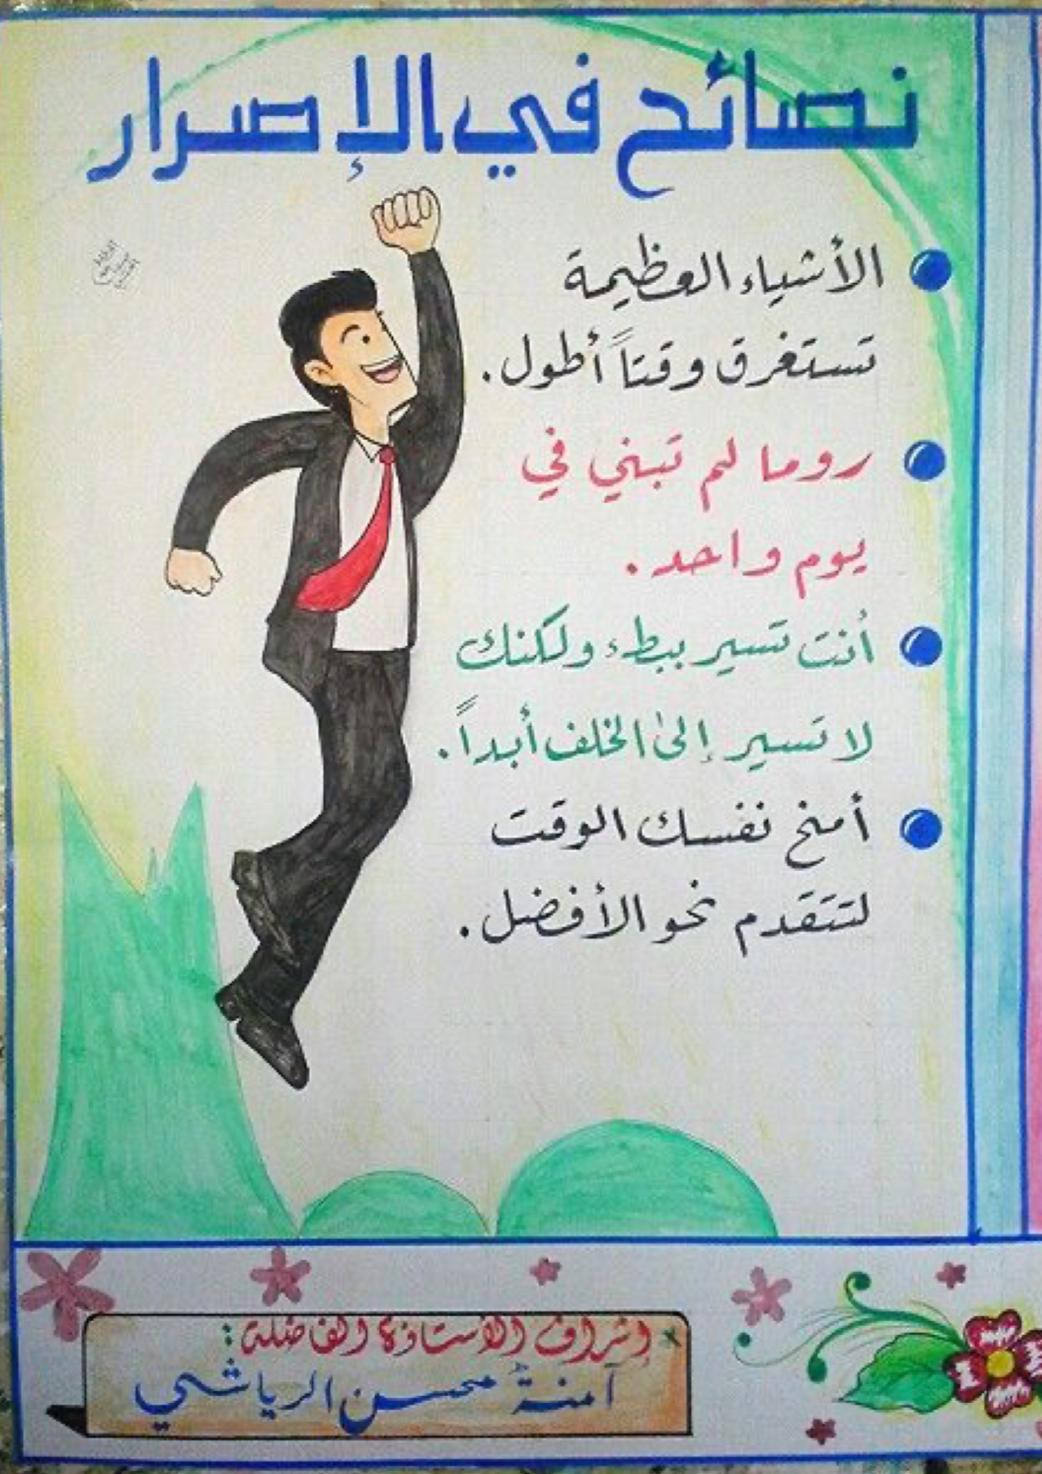 نصائح في الإصرار
الأشياء العظيمة
تستغرق وقتاً أطول.
روما لم تبني في
يوم واحد.
أنت تسير ببطء ولكنك
لا تسير إلى الخلف أبداً.
أمنح نفسك الوقت
لتتقدم نحو الأفضل.
اشراف الأستاذة الفاضلة:
آمنة محسن الرياشي